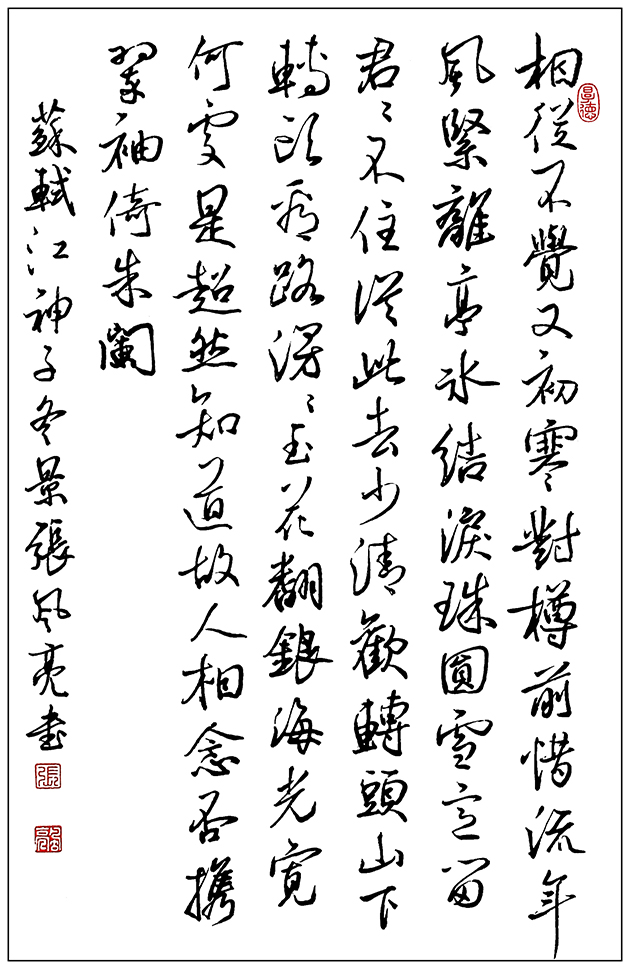 相從不覺又初寒對樽前惜流年
風緊離亭冰結淚珠圓雪意留
君〻不住從此去少清歡轉頭山下
轉頭看路漫〻玉花翻銀海光寬
何處是超然知道故人相念否攜
翠袖倚朱闌
蘇軾江神子冬景張風亮書
張